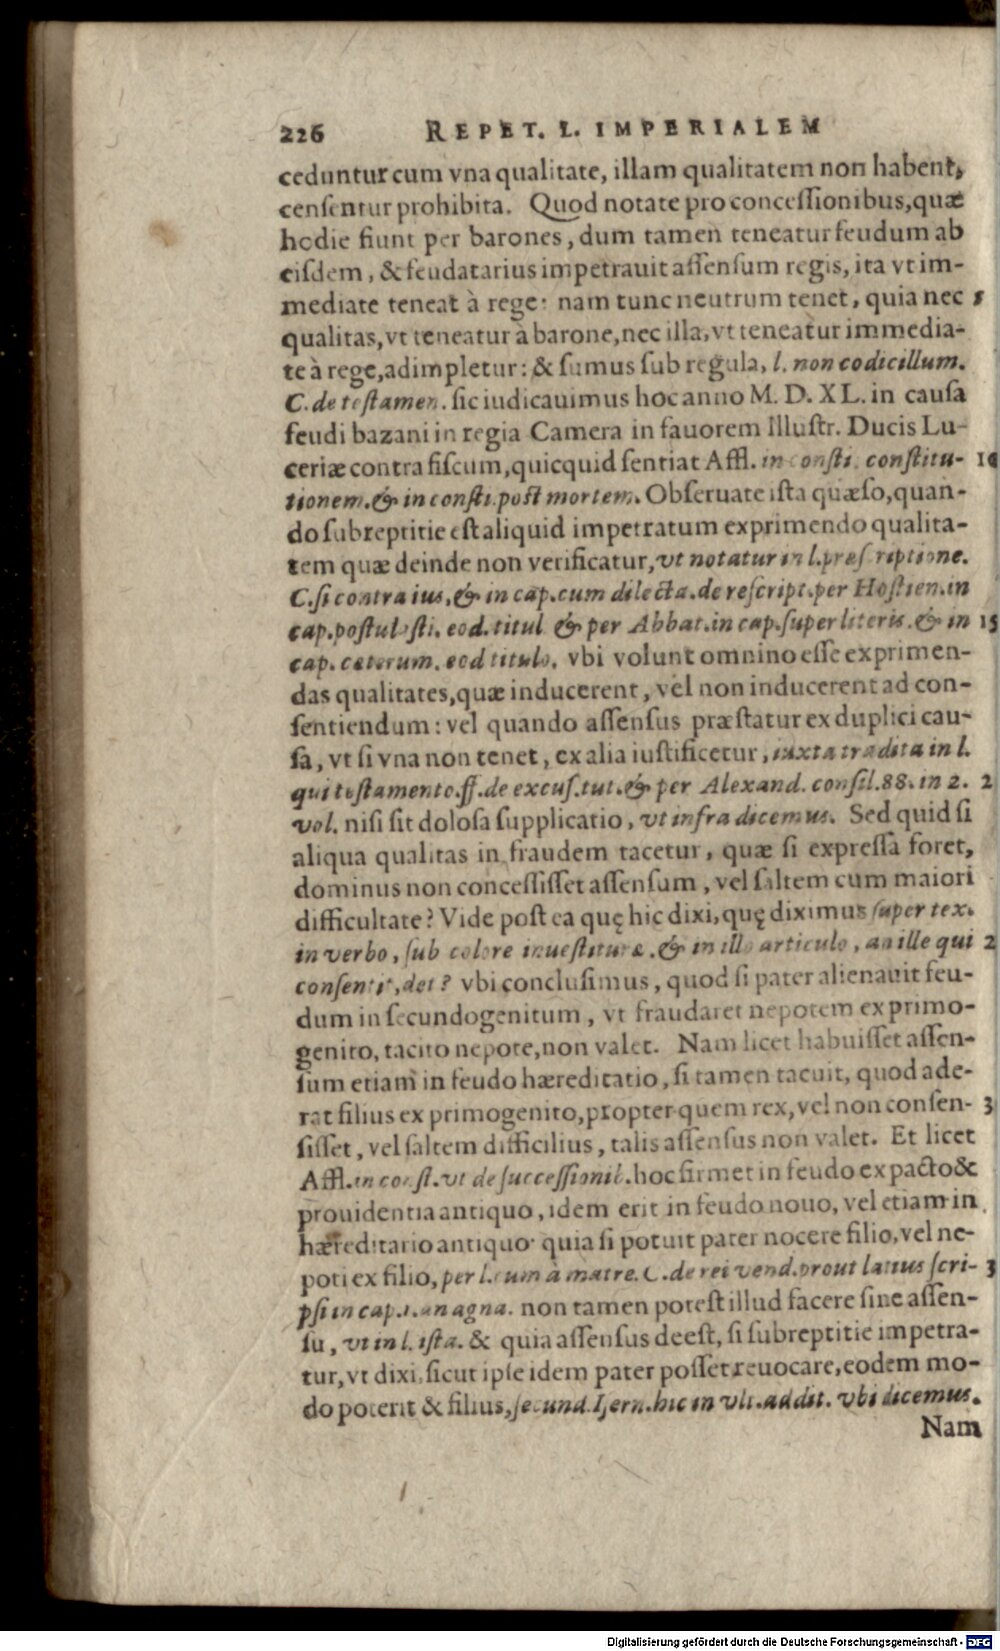 226 REPET. L. IMPERIALEM
ceduntur cum vna qualitate, illam qualitatem non habent,
censentur prohibita. Quod notate pro concessionibus, quæ
hodie fiunt per barones, dum tamen teneatur feudum ab
eisdem, & feudatarius impetrauit assensum regis, ita vt im-
mediate teneat à rege: nam tunc neutrum tenet, quia nec 5
qualitas, vt teneatur à barone, nec illa, vt teneatur immedia-
te à rege, adimpletur: & sumus sub regula, l. non codicillum.
C. de testamen. sic iudicauimus hoc anno M. D. XL. in causa
feudi bazani in regia Camera in fauorem Illustr. Ducis Lu-
ceriæ contra fiscum, quicquid sentiat Affl. in consti. constitu- 10
tionem. & in consti. post mortem. Obseruate ista quæso, quan-
do subreptitie est aliquid impetratum exprimendo qualita-
tem quæ deinde non verificatur, vt notatur in l. præscriptione.
C. si contra ius, & in cap. cum dilecta. de rescript. per Hostien. in
cap. postulasti. eod. titul & per Abbat. in cap. super literis. & in 15
cap. cæterum. eod titulo. vbi volunt omnino esse exprimen-
das qualitates, quæ inducerent, vel non inducerent ad con-
sentiendum: vel quando assensus præstatur ex duplici cau-
sa, vt si vna non tenet, ex alia iustificetur, iuxta tradita in l.
qui testamento. ff. de excus. tut. & per Alexand. consil. 88. in 2. 2
vol. nisi sit dolosa supplicatio, vt infra dicemus. Sed quid si
aliqua qualitas in fraudem tacetur, quæ si expressa foret,
dominus non concessisset assensum, vel saltem cum maiori
difficultate? Vide post ea quę hic dixi, quę diximus super tex.
in verbo, sub colore inuestituræ. & in illo articulo, an ille qui 2
consentit, det? vbi conclusimus, quod si pater alienauit feu-
dum in secundogenitum, vt fraudaret nepotem ex primo-
genito, tacito nepote, non valet. Nam licet habuisset assen-
sum etiam in feudo hæreditatio, si tamen tacuit, quod ade-
rat filius ex primogenito, propter quem rex, vel non consen- 3
sisset, vel saltem difficilius, talis assensus non valet. Et licet
Affl. in const. vt de successionib. hoc firmet in feudo ex pacto &
prouidentia antiquo, idem erit in feudo nouo, vel etiam in
hæreditario antiquo. quia si potuit pater nocere filio, vel ne-
poti ex filio, per l. cum à matre. C. de rei vend. prout latius scri- 3
psi in cap. 1. an agna. non tamen potest illud facere sine assen-
su, vt in l. ista. & quia assensus deest, si subreptitie impetra-
tur, vt dixi. sicut ipse idem pater posset reuocare, eodem mo-
do poterit & filius, secund. Isern. hic in vlt. addit. vbi dicemus.
Nam
Digitalisierung gefördert durch die Deutsche Forschungsgemeinschaft - DFG